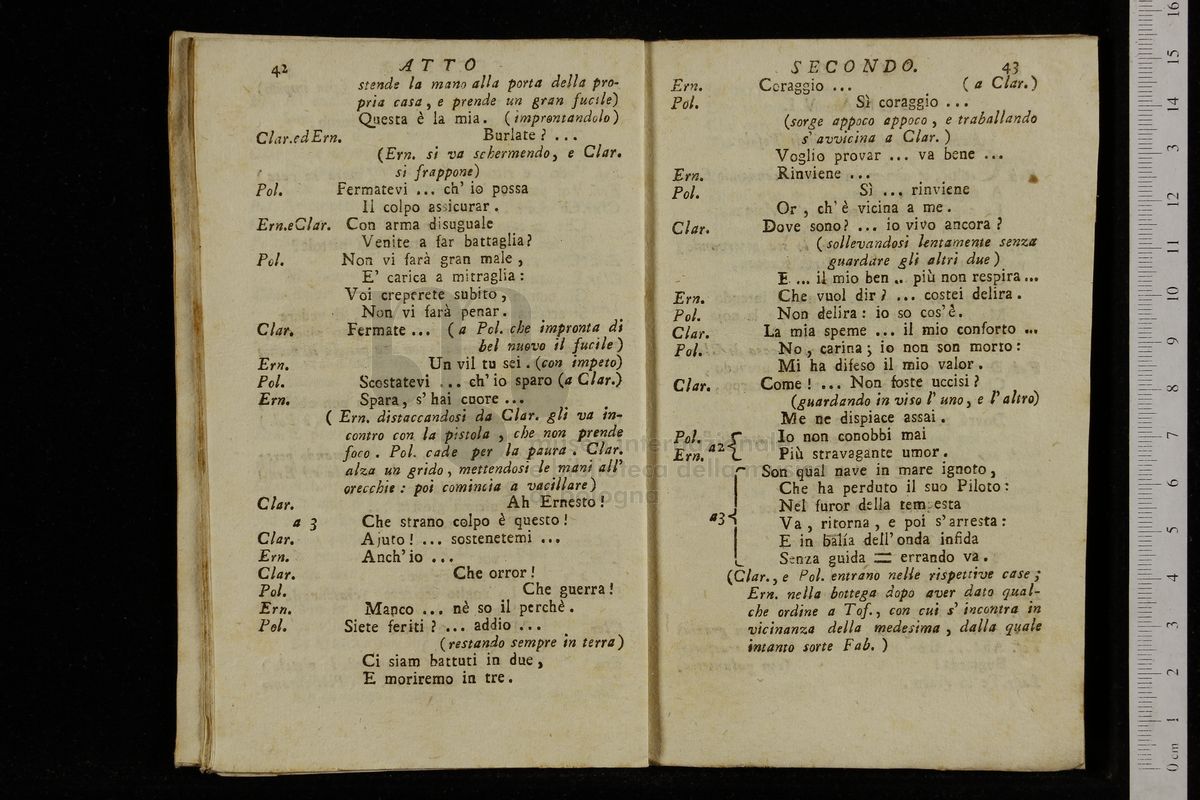 42 ATTO
stende la mano alla porta della pro-
pria casa, e prende un gran fucile)
Questa è la mia. (improntandolo)
Clar.ed Ern. Burlate? ...
(Ern. si va schermendo, e Clar.
si frappone)
Pol. Fermatevi ... ch' io possa
Il colpo assicurar.
Ern.e Clar. Con arma disuguale
Venite a far battaglia?
Pol. Non vi farà gran male,
E' carica a mitraglia:
Voi creperete subito,
Non vi farà penar.
Clar. Fermate ... (a Pol. che impronta di
bel nuovo il fucile)
Ern. Un vil tu sei. (con impeto)
Pol. Scostatevi ... ch' io sparo (a Clar.)
Ern. Spara, s' hai cuore ...
(Ern. distaccandosi da Clar. gli va in-
contro con la pistola, che non prende
foco. Pol. cade per la paura. Clar.
alza un grido, mettendosi le mani all'
orecchie: poi comincia a vacillare)
Clar. Ah Ernesto!
a 3 Che strano colpo è questo!
Clar. Ajuto! ... sostenetemi ...
Ern. Anch' io ...
Clar. Che orror!
Pol. Che guerra!
Ern. Manco ... nè so il perchè.
Pol. Siete feriti? ... addio ...
(restando sempre in terra)
Ci siam battuti in due,
E moriremo in tre.
SECONDO. 43
Ern. Coraggio ... (a Clar.)
Pol. Sì coraggio ...
(sorge appoco appoco, e traballando
s' avvicina a Clar.)
Voglio provar ... va bene ...
Ern. Rinviene ...
Pol. Sì ... rinviene
Or, ch' è vicina a me.
Clar. Dove sono? ... io vivo ancora?
(sollevandosi lentamente senza
guardare gli altri due)
E ... il mio ben .. più non respira ...
Ern. Che vuol dir? ... costei delira.
Pol. Non delira: io so cos' è.
Clar. La mia speme ... il mio conforto ...
Pol. No, carina; io non son morto:
Mi ha difeso il mio valor.
Clar. Come! ... Non foste uccisi?
(guardando in viso l' uno, e l' altro)
Me ne dispiace assai.
Pol. Ern. a2 Io non conobbi mai
Più stravagante umor.
a3 Son qual nave in mare ignoto,
Che ha perduto il suo Piloto:
Nel furor della tempesta
Va, ritorna, e poi s' arresta:
E in balía dell' onda infida
Senza guida = errando va.
(Clar., e Pol. entrano nelle rispettive case;
Ern. nella bottega dopo aver dato qual-
che ordine a Tof., con cui s' incontra in
vicinanza della medesima, dalla quale
intanto sorte Fab.)
museo internazionale
e biblioteca della musica
di bologna
0 cm 1 2 3 4 5 6 7 8 9 10 11 12 13 14 15 16